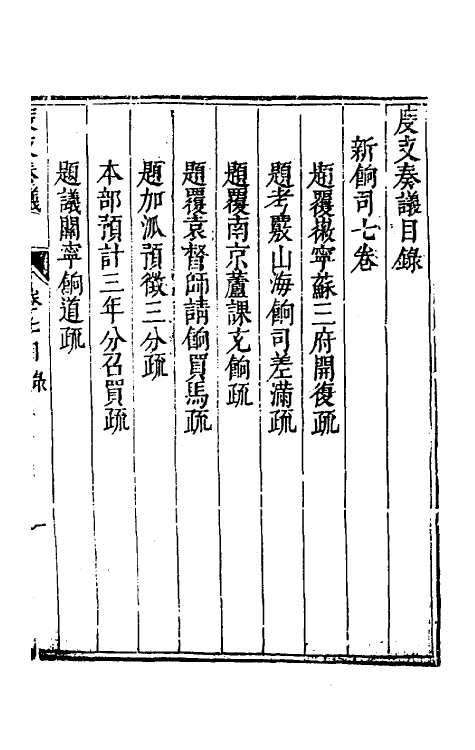 度支奏議目錄
新餉司七卷
題覆徽寧蘇三府開復疏
題考覈山海餉司差滿疏
題覆南京蘆課充餉疏
題覆袁督師請餉買馬疏
題加派預徵三分疏
本部預計三年分召買疏
題議關寧餉道疏
度支奏議 卷七目錄 一